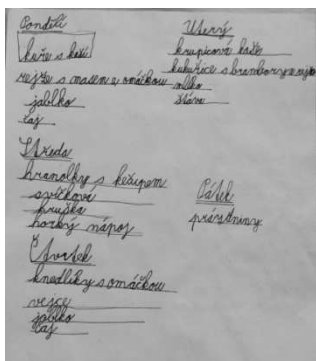 Pondělí
kuře s kaší
rejže s masem a omáčkou
jablko
čaj
Uterý
krupicová kaše
kukuřice s brambory a vejce
mlíko
šťáva
Středa
hranolky s kečupem
svíčková
hruška
horký nápoj
Čtvrtek
knedlíky s omáčkou
vejce
jablko
čaj
Pátek
prázdniny